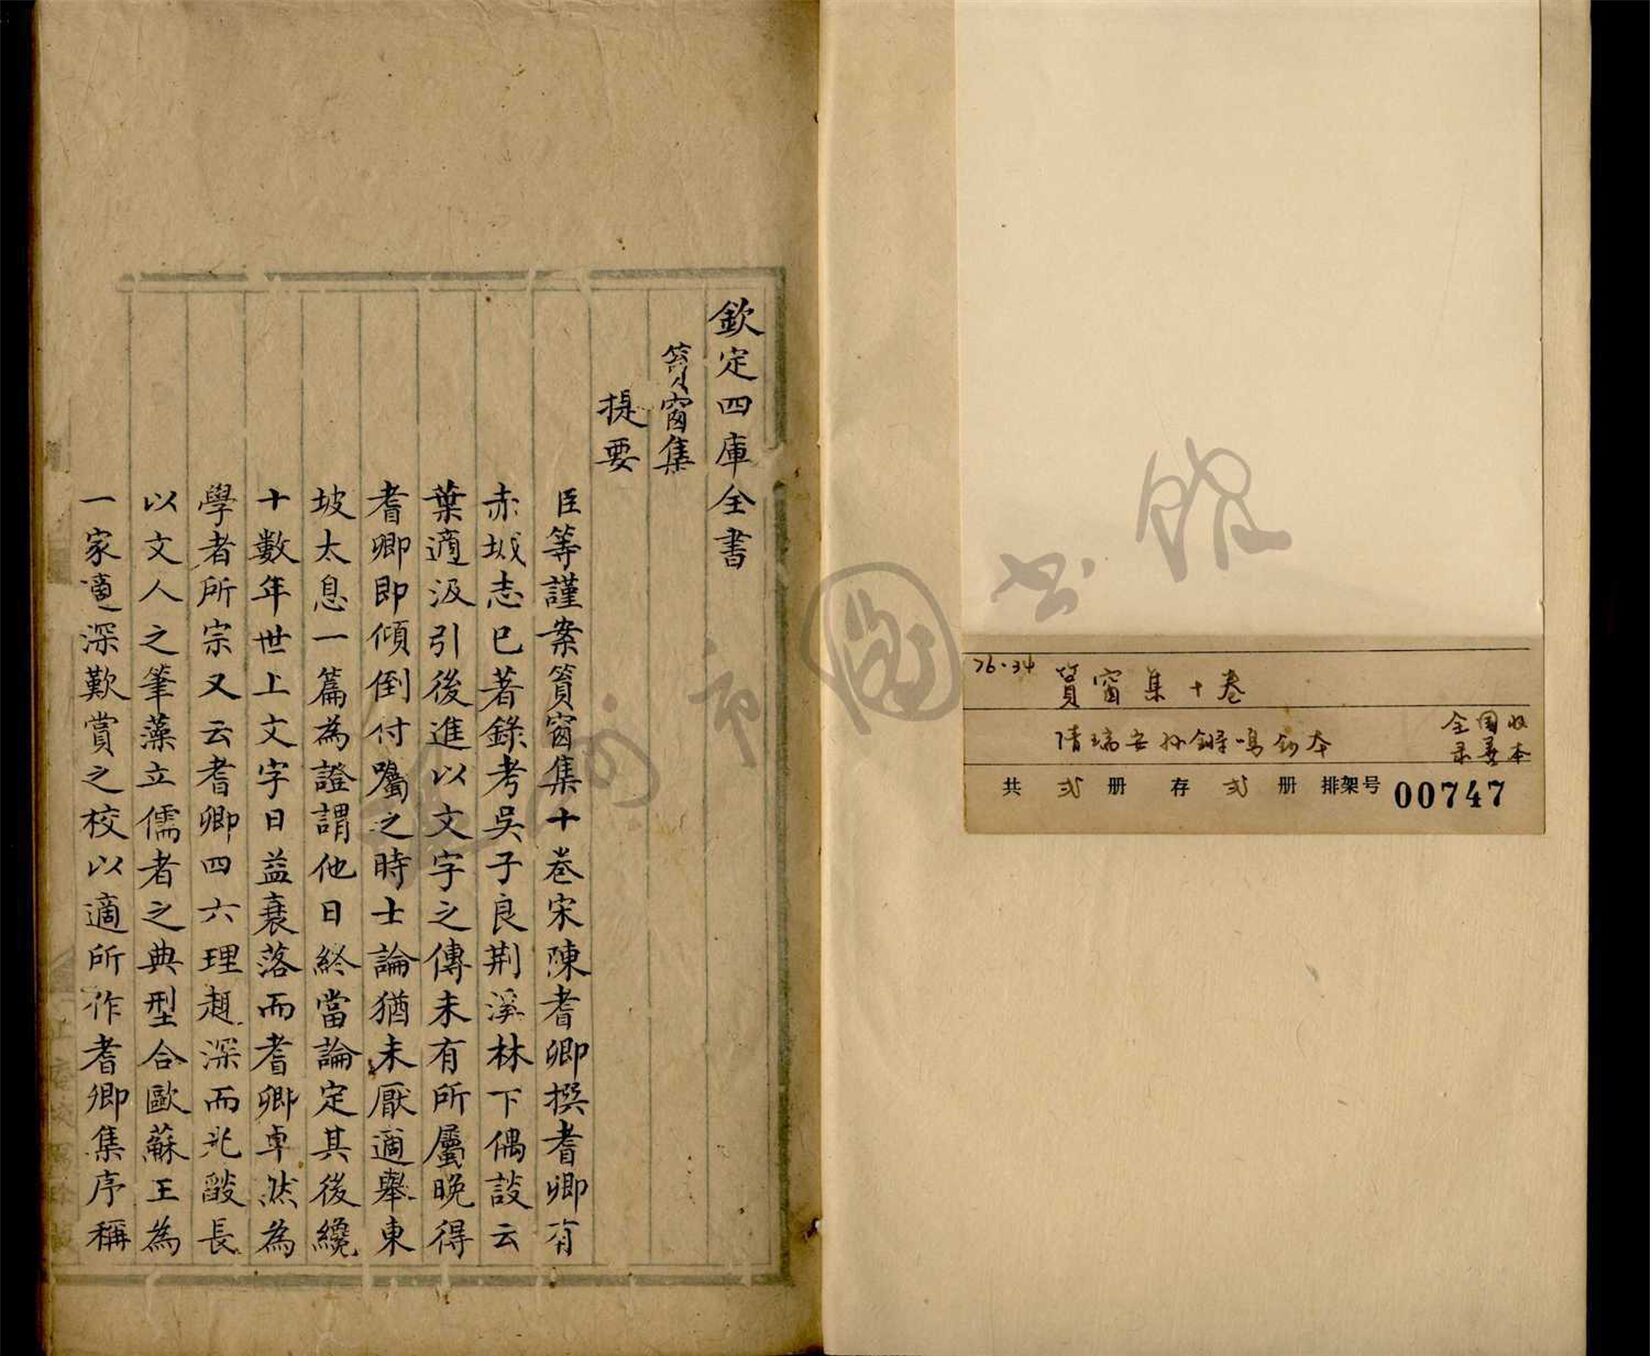 76·34
篔窗集十卷
清瑞安孙鏘鳴鈔本
全国收
录善本
共 弍 册 存 弍 册 排架号 00747
欽定四庫全書
篔窗集
提要
臣等謹案篔窗集十卷宋陳耆卿撰耆卿有
赤城志已著錄考吳子良荆溪林下偶談云
葉適汲引後進以文字之傳未有所屬晚得
耆卿即傾倒付囑之時士論猶未厭適舉東
坡太息一篇為證謂他日終當論定其後纔
十數年世上文字日益衰落而耆卿卓然為
學者所宗又云耆卿四六理趙深而光燄長
以文人之筆藻立儒者之典型合歐蘇王為
一家適深歎賞之校以適所作耆卿集序稱
州市圖书館